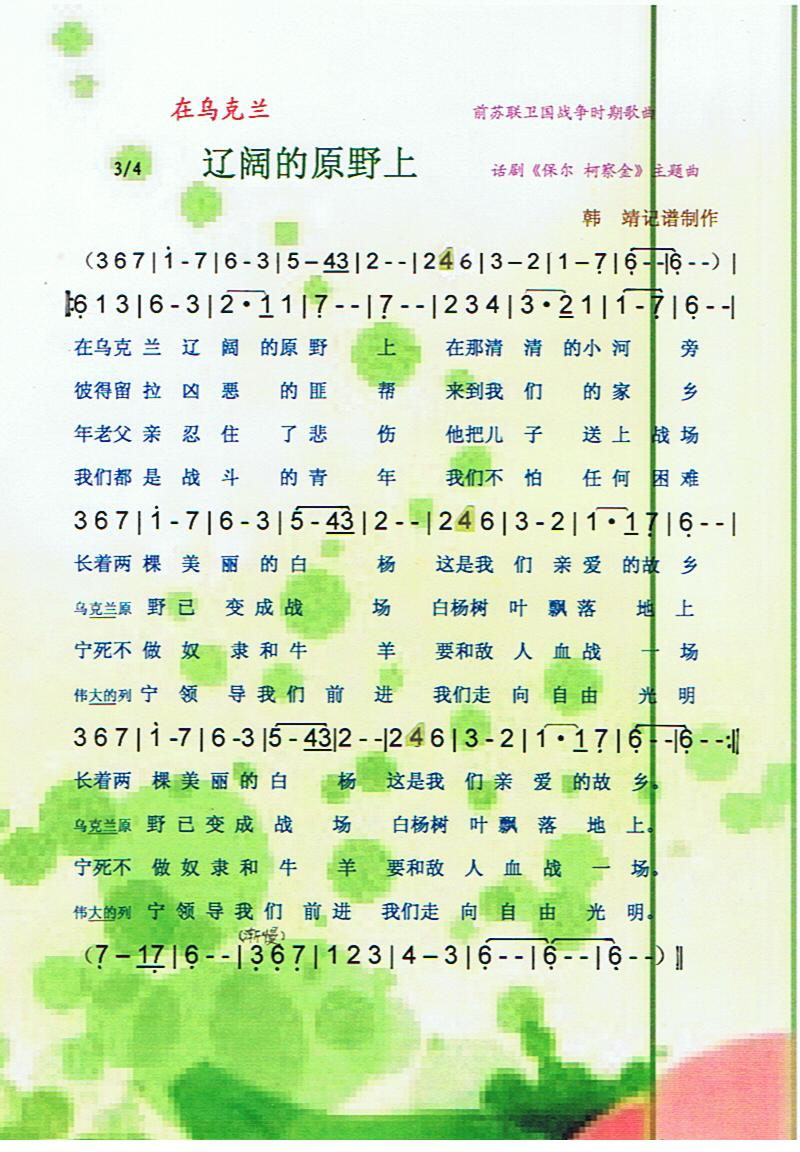 在乌克兰
前苏联卫国战争时期歌曲
3/4 辽阔的原野上
话剧《保尔 柯察金》主题曲
韩 靖记谱制作
(3 6 7 | i - 7 | 6 - 3 | 5 – 43 | 2 - - | 2 4 6 | 3 – 2 | 1 – 7 | 6 - - | 6 - - ) |
‖: 6 1 3 | 6 - 3 | 2 · 1 1 | 7 - - | 7 - - | 2 3 4 | 3 · 2 1 | 1 - 7 | 6 - - |
在乌克 兰 辽 阔 的原 野 上 在那清 清 的小 河 旁
彼得留 拉 凶 恶 的 匪 帮 来到我 们 的 家 乡
年老父 亲 忍 住 了 悲 伤 他把儿 子 送 上 战 场
我们都 是 战 斗 的 青 年 我们不 怕 任 何 困 难
3 6 7 | i - 7 | 6 - 3 | 5 - 43 | 2 - - | 2 4 6 | 3 - 2 | 1 · 1 7 | 6 - - |
长着两 棵 美 丽 的 白 杨 这是我 们 亲 爱 的故 乡
乌克兰原 野 已 变 成 战 场 白杨树 叶 飘 落 地 上
宁死不 做 奴 隶 和 牛 羊 要和敌 人 血 战 一 场
伟大的列 宁 领 导 我 们 前 进 我们走 向 自 由 光 明
3 6 7 | i - 7 | 6 - 3 | 5 - 43 | 2 - - | 2 4 6 | 3 - 2 | 1 · 1 7 | 6 - - | 6 - - :‖
长着两 棵 美 丽 的 白 杨 这是我 们 亲 爱 的 故 乡。
乌克兰原 野 已 变 成 战 场 白杨树 叶 飘 落 地 上。
宁死不 做 奴 隶 和 牛 羊 要和敌 人 血 战 一 场。
伟大的列 宁 领 导 我 们 前 进 我们走 向 自 由 光 明。
(渐慢)
(7 – 17 | 6 - - | 3 6 7 | 1 2 3 | 4 – 3 | 6 - - | 6 - - | 6 - - ) ‖